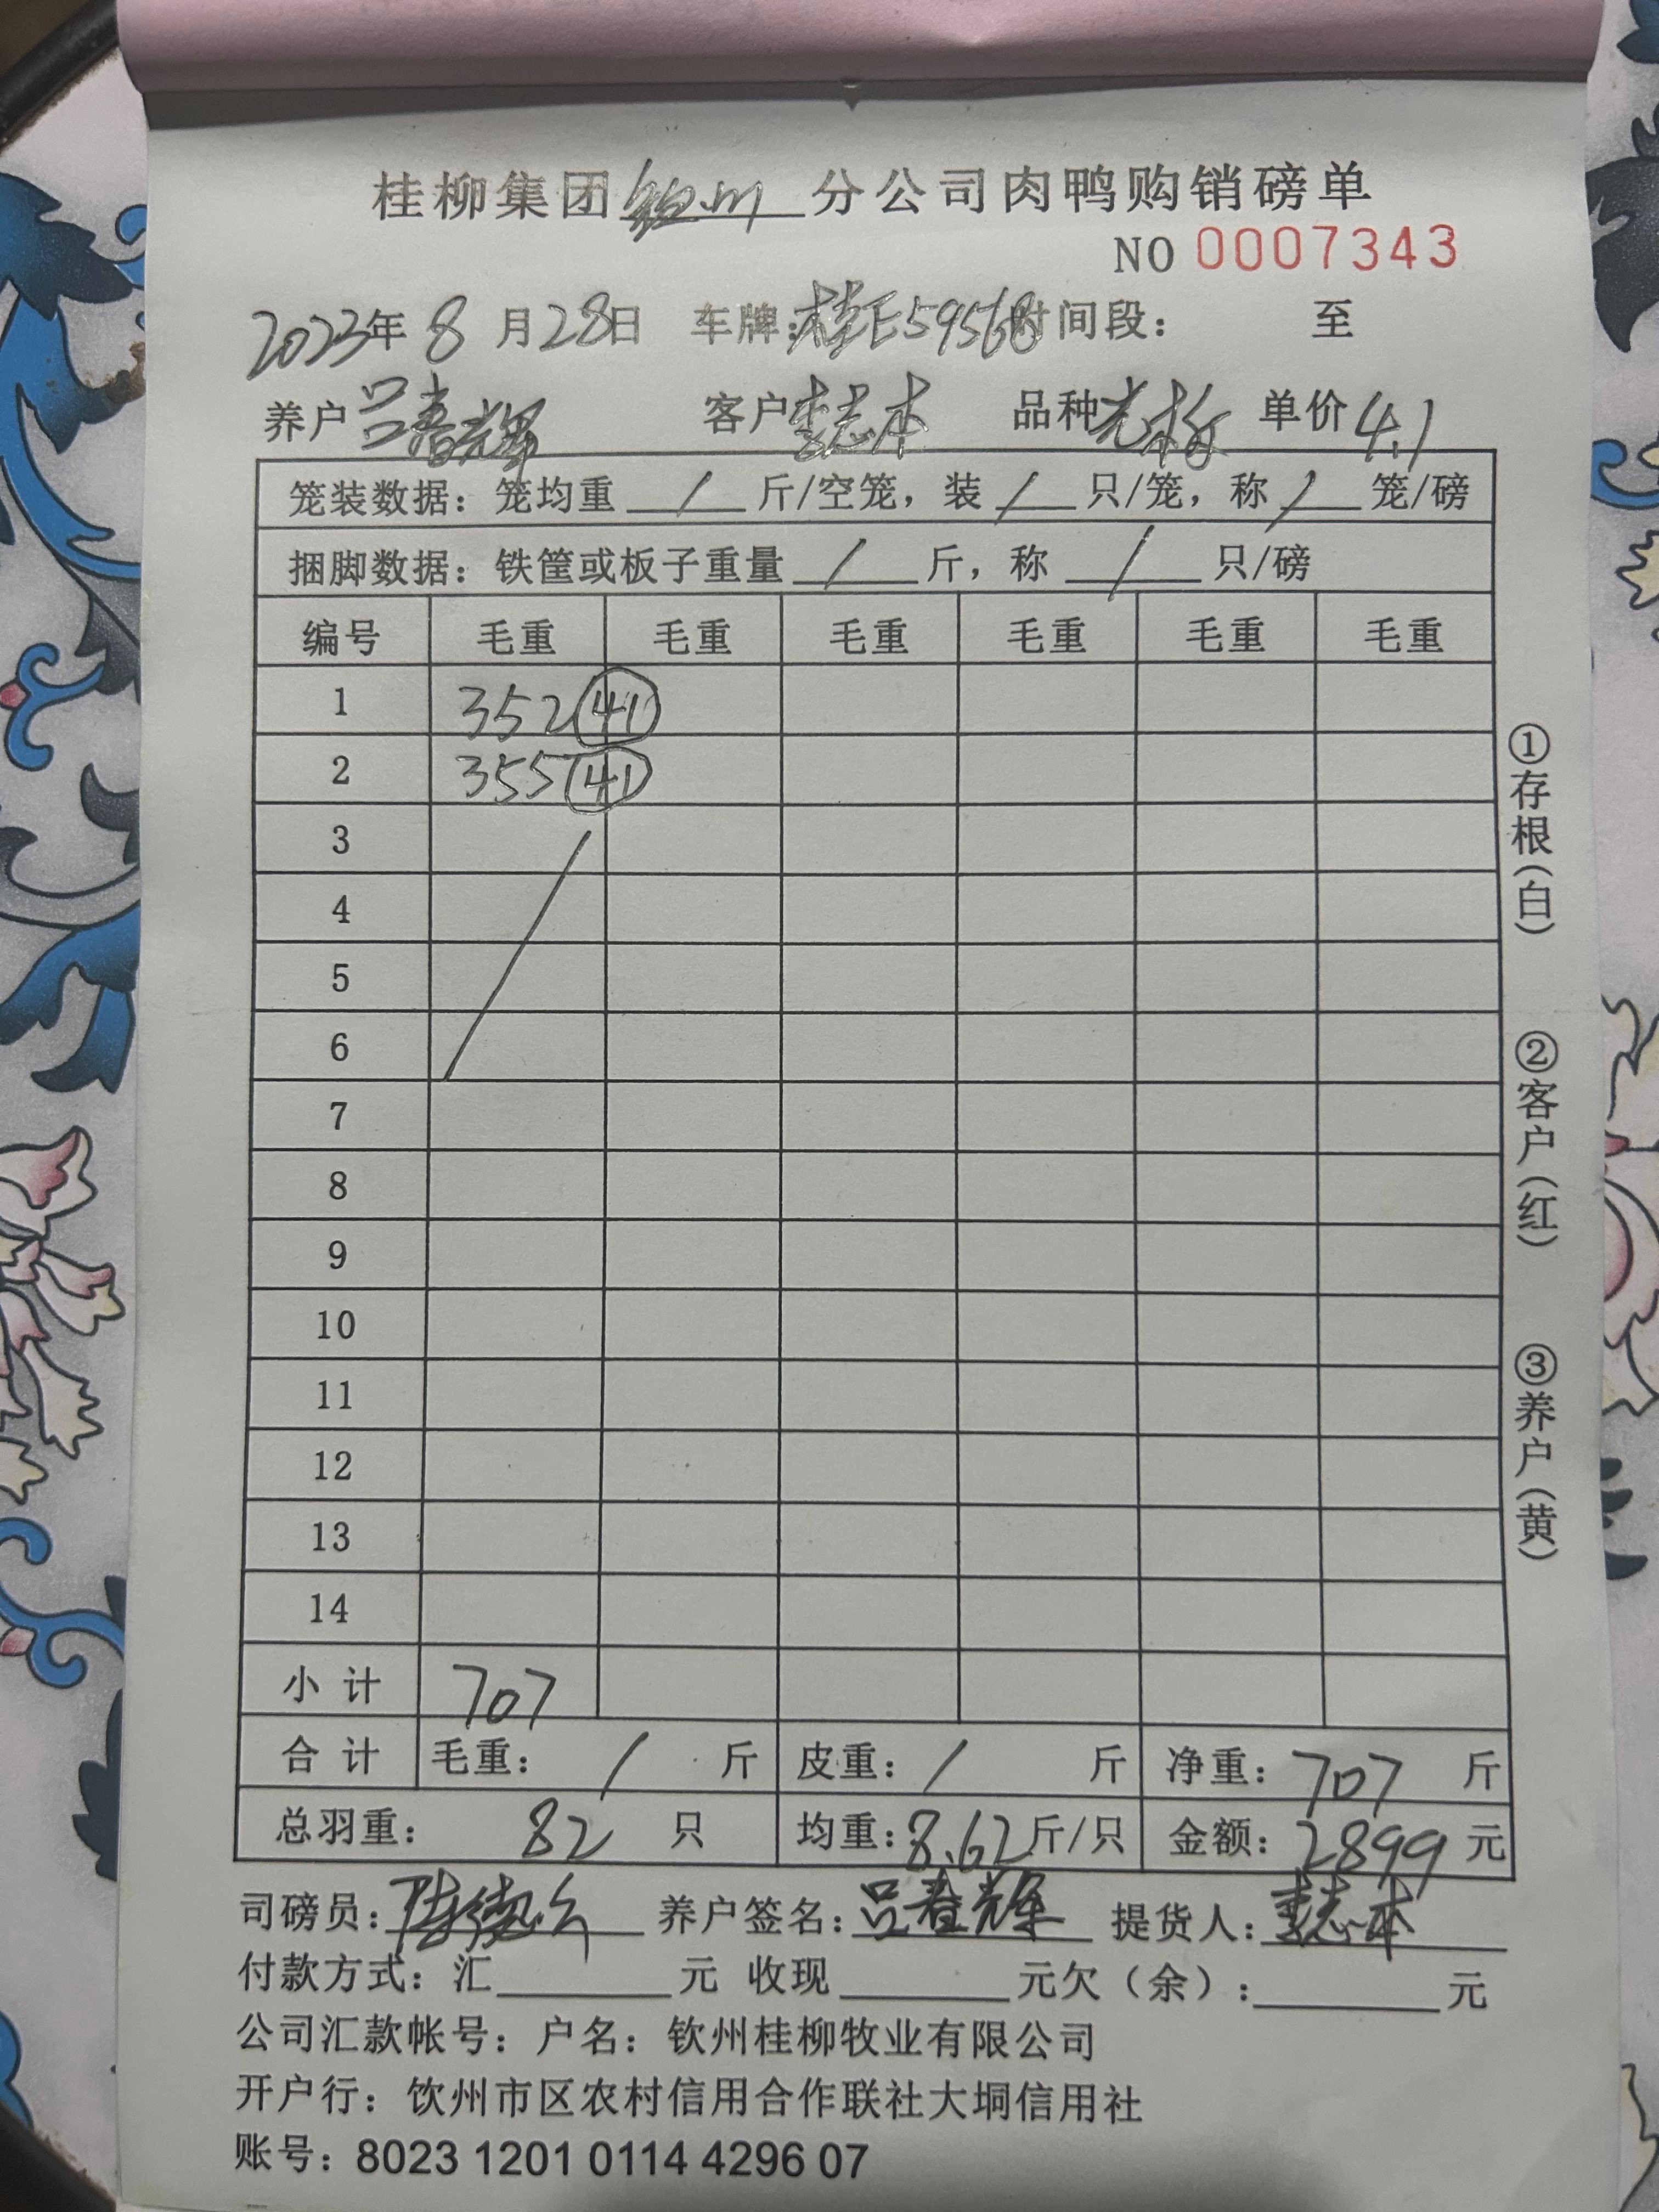 桂柳集团钦州分公司肉鸭购销磅单
NO 0007343
2023年 8 月 28 日 车牌：桂E59568 时间段： 至
养户 吕春辉 客户 李志本 品种 单价 4.1
笼装数据：笼均重 / 斤/空笼，装 / 只/笼，称 / 笼/磅
捆脚数据：铁筐或板子重量 / 斤，称 / 只/磅
编号 毛重 毛重 毛重 毛重 毛重 毛重
1 352 41
2 355 41
3
4
5
6
7
8
9
10
11
12
13
14
小计 707
合计 毛重： / 斤 皮重： / 斤 净重： 707 斤
总羽重： 82 只 均重：8.62斤/只 金额：2899元
司磅员： 养户签名：吕春辉 提货人：李志本
付款方式：汇 元 收现 元欠（余）： 元
公司汇款帐号：户名：钦州桂柳牧业有限公司
开户行：钦州市区农村信用合作联社大垌信用社
账号：8023 1201 0114 4296 07
①存根（白）
②客户（红）
③养户（黄）